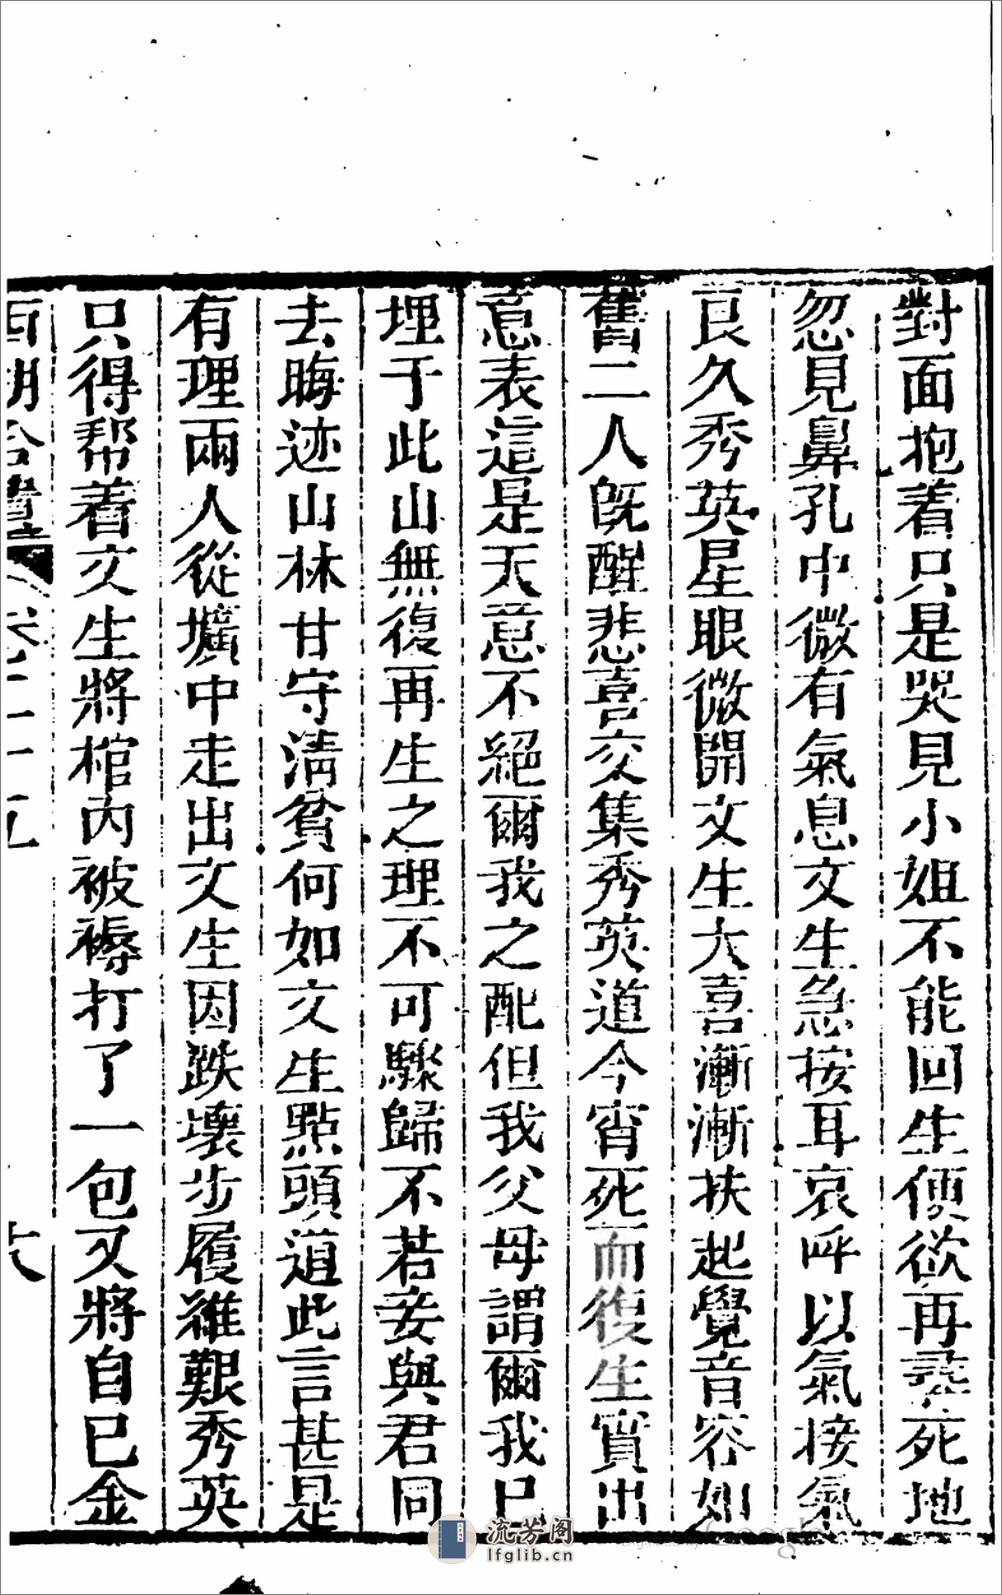 對面抱着只是哭見小姐不能回生便欲再尋死地
忽見鼻孔中微有氣息文生急按耳哀呼以氣接氣
良久秀英星眼微開文生大喜漸漸扶起覺音容如
舊二人既醒悲喜交集秀英道今宵死而復生實出
意表這是天意不絕爾我之配但我父母謂爾我已
埋于此山無復再生之理不可驟歸不若妾與君同
去晦迹山林甘守清貧何如文生點頭道此言甚是
有理兩人從壙中走出文生因跌壞步履維艱秀英
只得帮着文生將棺內被褥打了一包又將自已金
西湖合
六
流芳阁
lfglib.cn